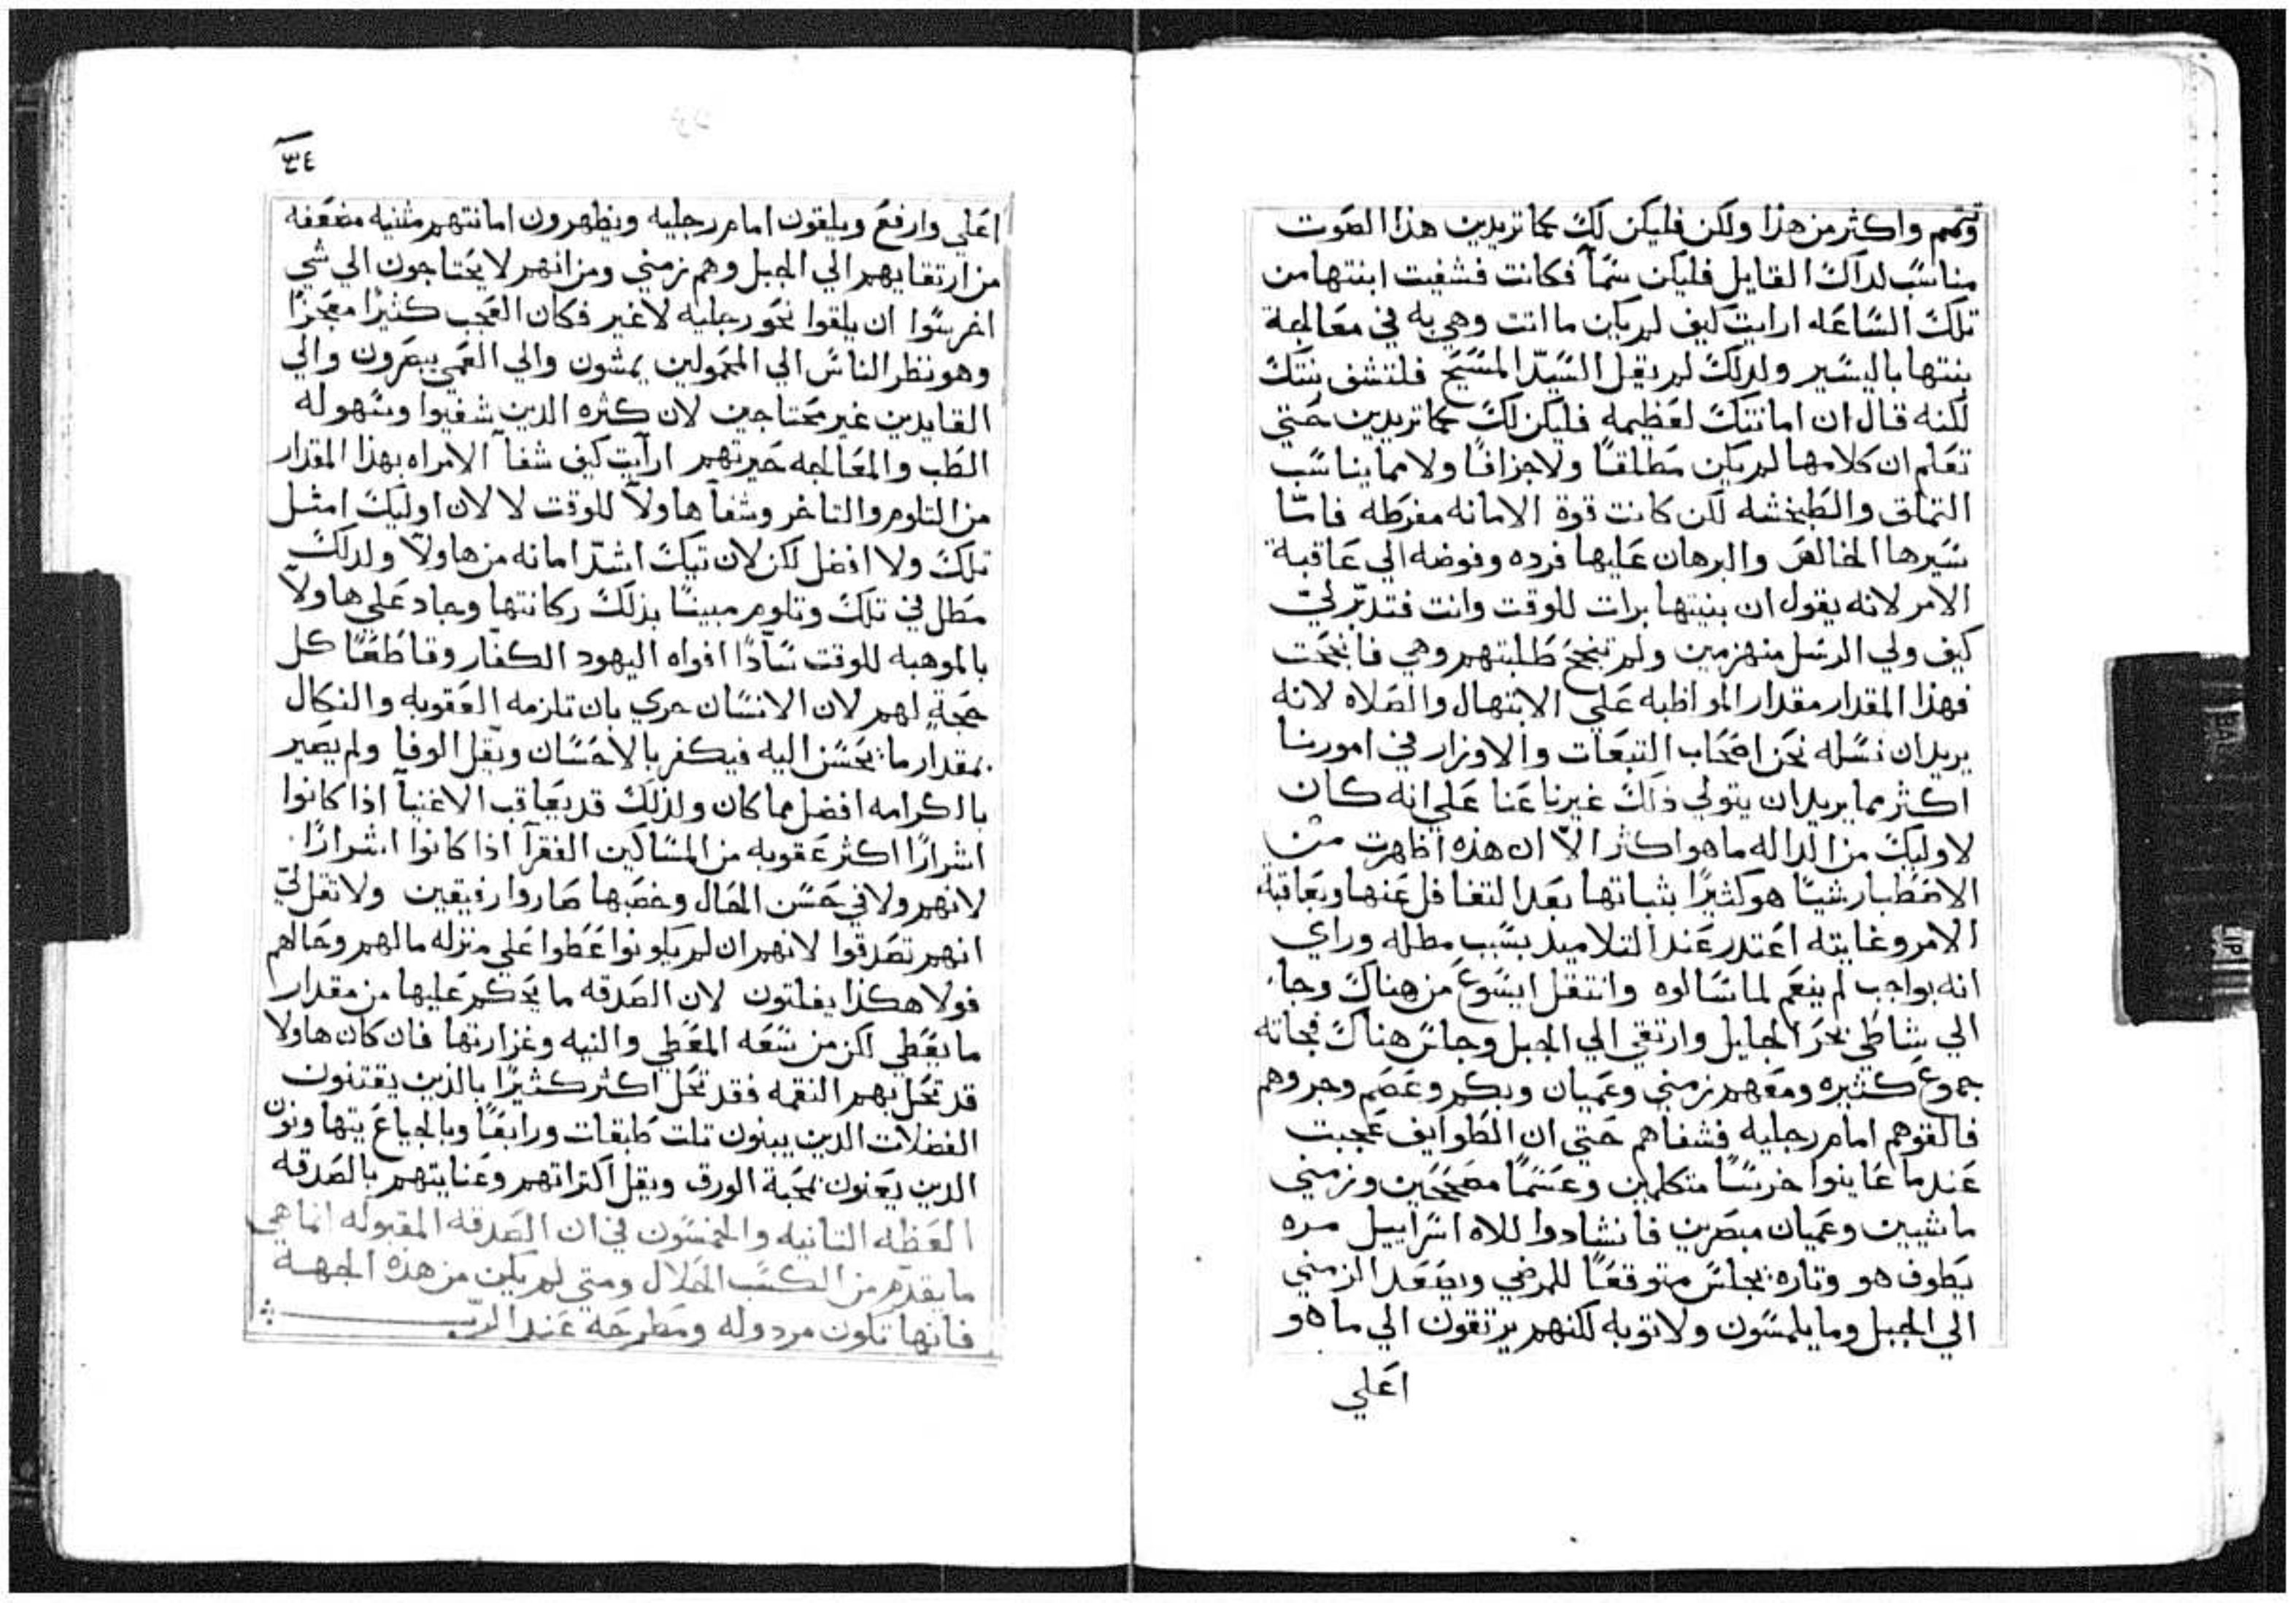 وتتمم واكثر من هذا ولكن فليكن لك كما تريدين هذا الصوت
مناسب لداك القايل فليكن سمآ فكانت فشفيت ابنتها من
تلك الساعه ارايت كيف لم يكن ما اتت وهي به في معالجة
بنتها باليسير ولدلك لم يقل السيد المسيح فلتشف بنتك
لكنه قال ان امانتك لعظيمه فليكن لك كما تريدين حتي
تعلم ان كلامها لم يكن مطلقا ولا جزافا ولا مما يناسب
التملق والطبخشه لكن كانت قوة الامانه مفرطه فاما
سيرها الخالص والبرهان عليها فرده وفوضه الي عاقبة
الامر لانه يقول ان بنيتها برات للوقت وانت فتدبر لي
كيف ولي الرسل منهزمين ولم تنجح طلبتهم وهي فانجحت
فهذا المقدار مقدار المواظبه علي الابتهال والصلاه لانه
يريد ان نسله نحن اصحاب التبعات والاوزار في امورنا
اكثر مما يريد ان يتولي ذلك غيرنا عنا علي انه كان
لاوليك من الداله ما هو اكثر الا ان هذه اظهرت من
الاصطبار شيا هو كثيرا بثباتها بعد التغافل عنها وبعاقبة
الامر وغايته اعتدر عند التلاميد بسبب مطله وراي
انه بواجب لم ينعم لما سالوه وانتقل ايسوع من هناك وجا
الي شاطي بحر الجليل وارتقي الي الجبل وجلس هناك فجاته
جموع كثيره ومعهم زمني وعميان وبكم وعصم وجروهم
فالقوهم امام رجليه فشفاهم حتي ان الطوايف عجبت
عندما عاينوا خرسا متكلمين وعسما مصححين وزمني
ماشيين وعميان مبصرين فانشادوا للاه اسراييل مره
يطوف هو وتاره يجلس متوقعا للمرضي ويصعد الزمني
الي الجبل وما يلمسون ولا ثوبه لكنهم يرتقون الي ما هو
اعلي
٣٤
اعلي وارفع ويلقون امام رجليه ويظهرون امانتهم مثنيه مضعفه
من ارتقايهم الي الجبل وهم زمني ومن انهم لا يحتاجون الي شي
اخر سوا ان يلقوا نحو رجليه لا غير فكان العجب كثيرا معجزا
وهو نظر الناس الي المحمولين يمشون والي العمي يبصرون والي
القايدين غير محتاجين لان كثره الدين شفيوا وسهوله
الطب والمعالجه حيرتهم ارآيت كيف شفآ الامراه بهذا المقدار
من التلوم والتاخر وشفآ هاولآ للوقت لا لان اوليك امثل
تلك ولا افضل لكن لان تيك اشد امانه من هاولآ ولدلك
مطل في تلك وتلوم مبينا بذلك ركانتها وجاد علي هاولآ
بالموهبه للوقت سآدا افواه اليهود الكفار وقاطعا كل
حجة لهم لان الانسان حري بان تلزمه العقوبه والنكال
بمقدار ما يحسن اليه فيكفر بالاحسان ويقل الوفا ولم يصير
بالكرامه افضل مما كان ولذلك قد يعاقب الاغنيآ اذا كانوا
اشرارا اكثر عقوبه من المساكين الفقرآ اذا كانوا اشرارا
لانهم ولا في حسن الحال وخصبها صاروا رفيقين ولا تقل لي
انهم تصدقوا لانهم ان لم يكونوا عطوا علي منزله مالهم وحالهم
فولا هكذا يفلتون لان الصدقه ما يحكم عليها من مقدار
ما يعطي لكن من سعه المعطي والنيه وغزارتها فان كان هاولا
قد تحل بهم النقمه فقد تحل اكثر كثيرا بالذين يقتنون
الفضلات الدين يبنون تلت طبقات ورابعا وبالجياع يتهاونون
الدين يعنون بمحبة الورق ويقل اكتراتهم وعنايتهم بالصدقه
العظه التانيه والخمسون في ان الصدقه المقبوله انما هي
ما يقدم من الكسب الحلال ومتي لم يكن من هذه الجهة
فانها تكون مردوله ومطرحة عند الرب